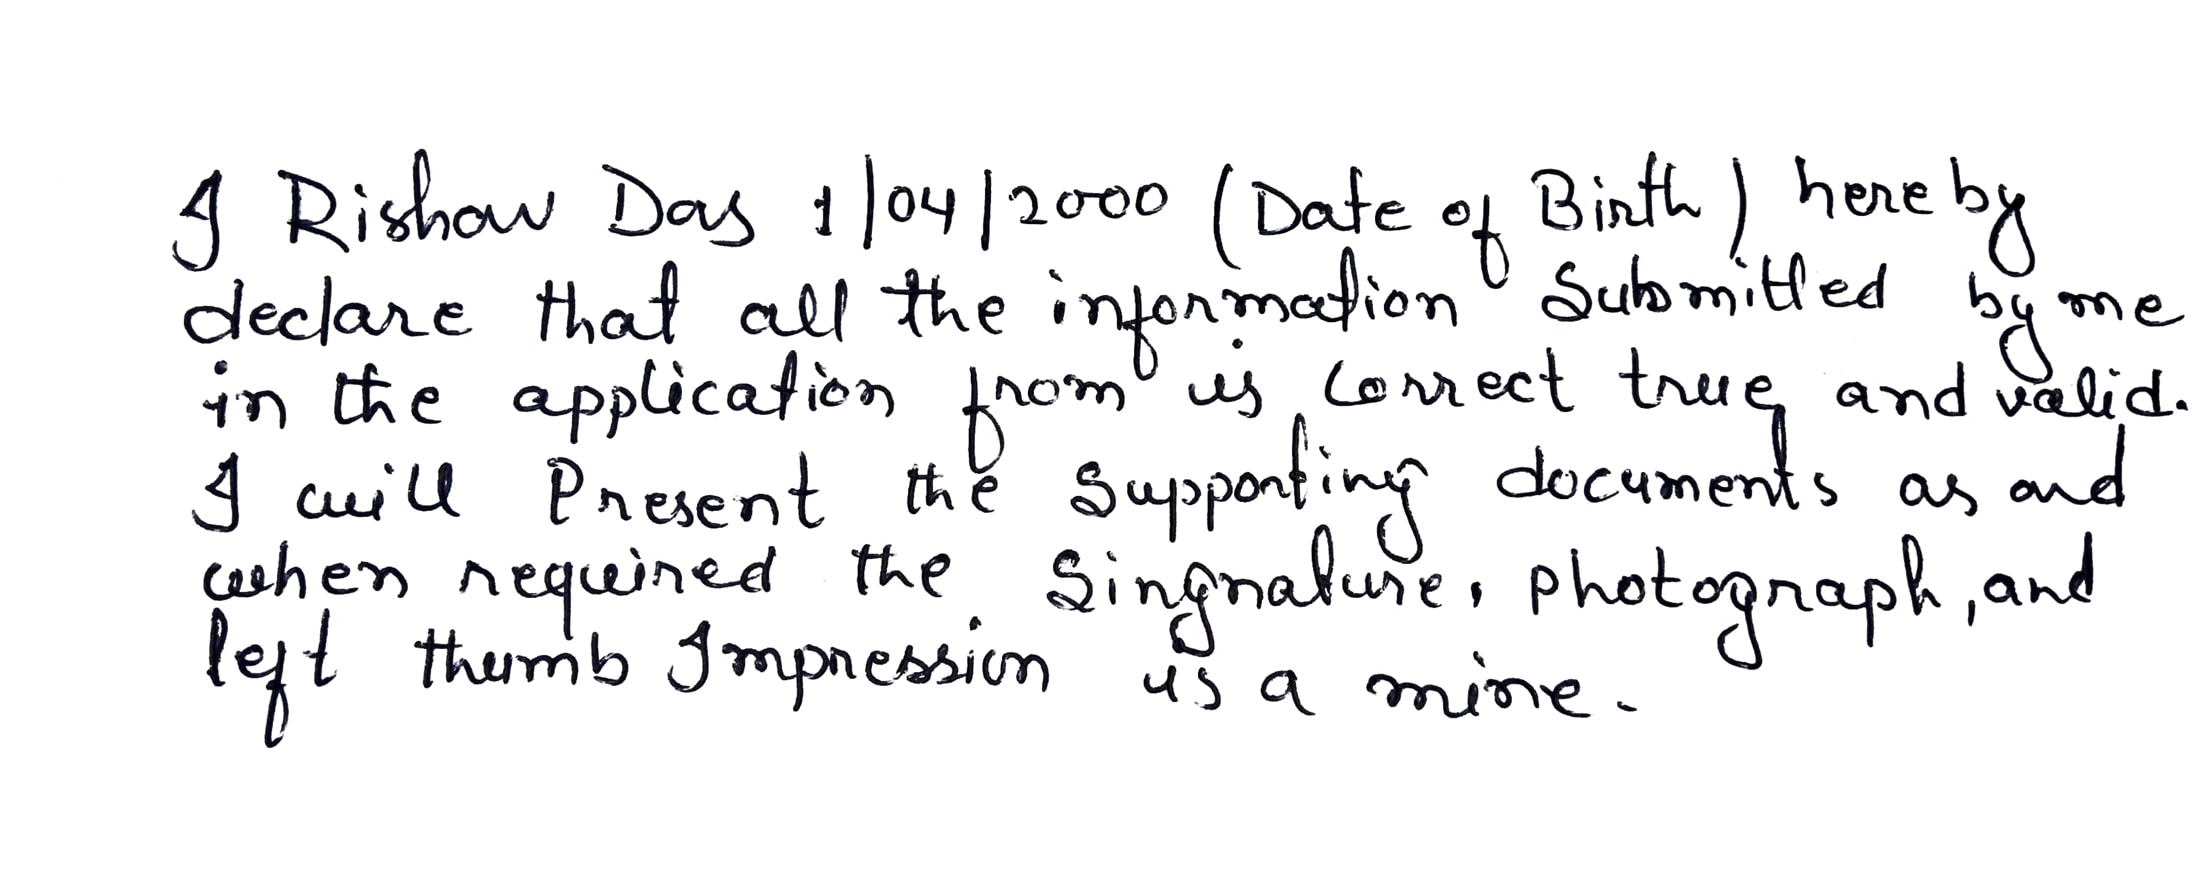 I Rishav Das 1/04/2000 (Date of Birth) hereby
declare that all the information submitted by me
in the application from is correct true and valid.
I will Present the supporting documents as and
when required the Singnature, photograph, and
left thumb Impression is a mine.